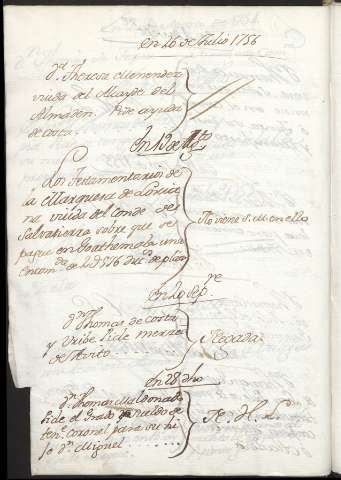 En 26 de Julio 1756
Dª Theresa Menendez
viuda del Alcayde del
Almaden. Pide ayuda
de costa.
En 19 de Agto
Los Testamentarios de
la Marquesa de Loriana
na viuda del Conde de
Salvatierra sobre que se
pague en Goathemala una
Encomda de 4D516 ducs de plata
No viene S. M. en ello
En 20 Sepre
Dn Thomas de Costa
y Uribe pide merced
de Avito
Negada
En 28 dho
Dn Thomas Maldonado
Pide el Grado
Tente Coronel para su hi
jo Dn Miguel